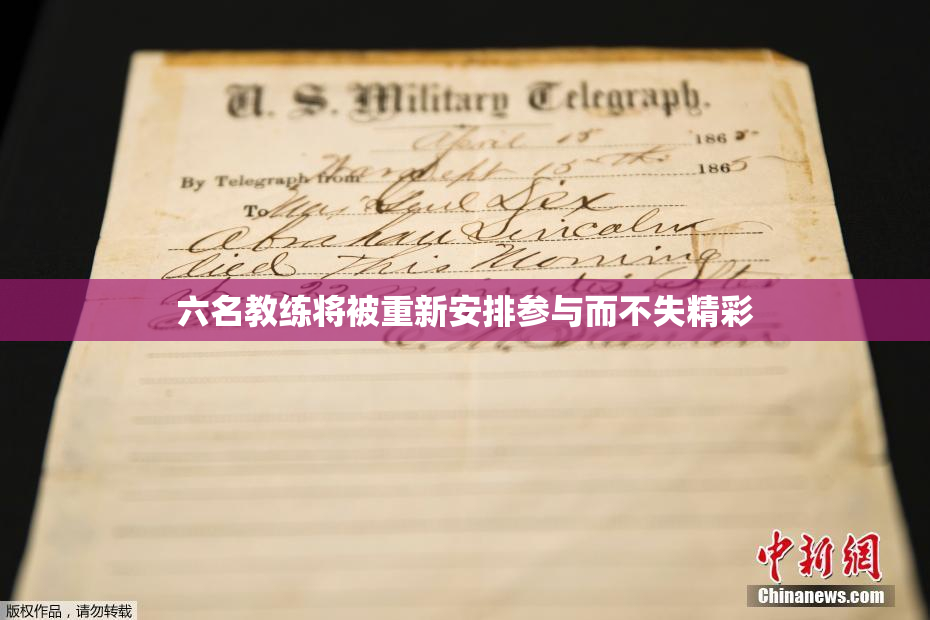 U. S. Military Telegraph.
April 15 1865
By Telegraph from War Dept 15th 1865
To Maj Genl Dix
Abraham Lincoln
died This Morning
at 22 minutes after
六名教练将被重新安排参与而不失精彩
E. M. Stanton
中新网
Chinanews.com
版权作品，请勿转载